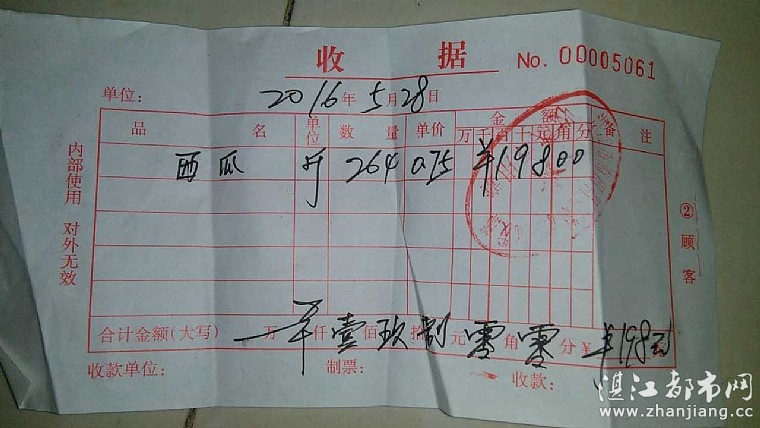 收 据 No. 00005061
单位: 2016年5月28日
品 名 单位 数 量 单价 金 额 备 注
万千百十元角分
西瓜 斤 264 0.75 ¥19800
合计金额(大写) 万 仟壹佰玖拾捌元零角零分 ¥198元
收款单位: 制票: 收款:
内部使用 对外无效
②顾客
湛江都市网
www.zhanjiang.cc